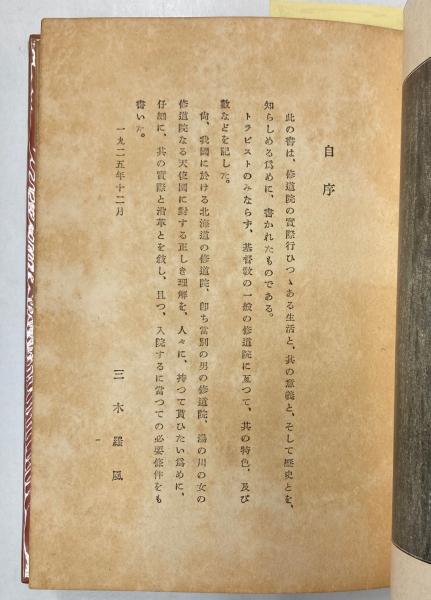 自序
此の書は、修道院の實際行ひつゝある生活と、其の意義と、そして歷史とを、
知らしめる爲めに、書かれたものである。
トラピストのみならず、基督敎の一般の修道院に亙つて、其の特色、及び
數などを記した。
尙、我國に於ける北海道の修道院、卽ち當別の男の修道院、湯の川の女の
修道院なる天使園に對する正しき理解を、人々に、持つて貰ひたい爲めに、
仔細に、其の實際と沿革とを敍し、且つ、入院するに當つての必要條件をも
書いた。
一九二五年十二月
三木羅風